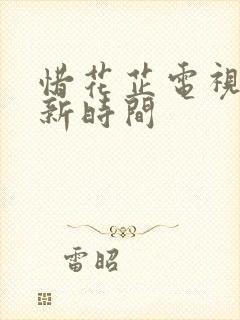 惜花芷電視
新時間
雷昭